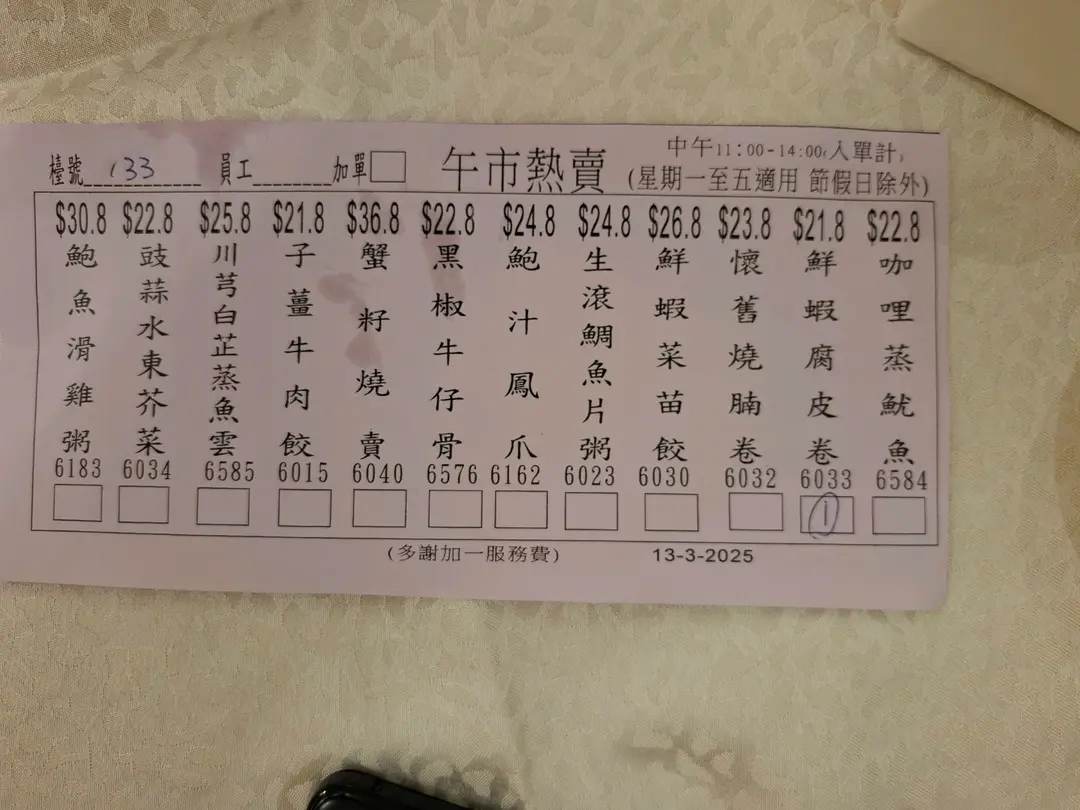 檯號 133 員工 加單 午市熱賣 中午11:00-14:00(入單計)
(星期一至五適用 節假日除外)
$30.8 $22.8 $25.8 $21.8 $36.8 $22.8 $24.8 $24.8 $26.8 $23.8 $21.8 $22.8
鮑魚滑雞粥
豉蒜水東芥菜
川芎白芷蒸魚雲
子薑牛肉餃
蟹籽燒賣
黑椒牛仔骨
鮑汁鳳爪
生滾鯛魚片粥
鮮蝦菜苗餃
懷舊燒腩卷
鮮蝦腐皮卷
咖哩蒸魷魚
6183 6034 6585 6015 6040 6576 6162 6023 6030 6032 6033 6584
1
(多謝加一服務費) 13-3-2025